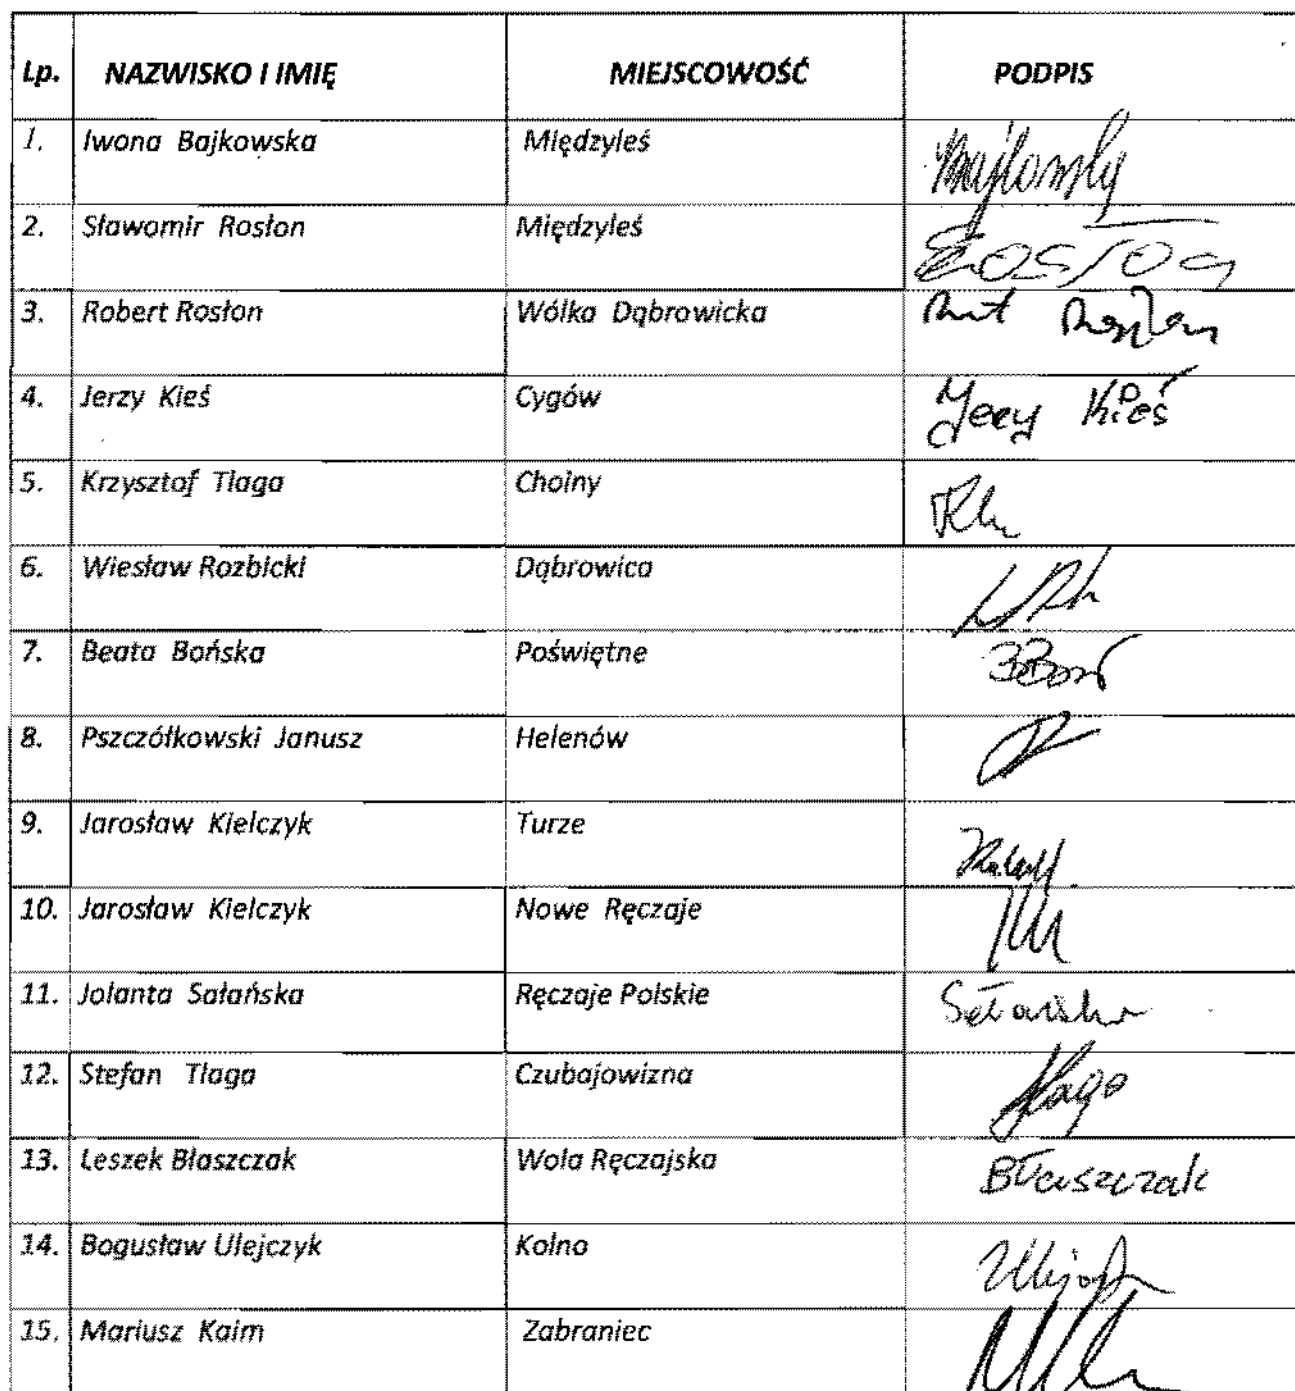 Lp. NAZWISKO I IMIĘ MIEJSCOWOŚĆ PODPIS
1. Iwona Bajkowska Międzyleś
2. Sławomir Rosłon Międzyleś
3. Robert Rosłon Wólka Dąbrowicka
4. Jerzy Kieś Cygów Jerzy Kieś
5. Krzysztof Tlaga Choiny
6. Wiesław Rozbicki Dąbrowica
7. Beata Bońska Poświętne
8. Pszczółkowski Janusz Helenów
9. Jarosław Kielczyk Turze
10. Jarosław Kielczyk Nowe Ręczaje
11. Jolanta Sałańska Ręczaje Polskie
12. Stefan Tlaga Czubajowizna
13. Leszek Błaszczak Wola Ręczajska Błaszczak
14. Bogusław Ulejczyk Kolno
15. Mariusz Kaim Zabraniec